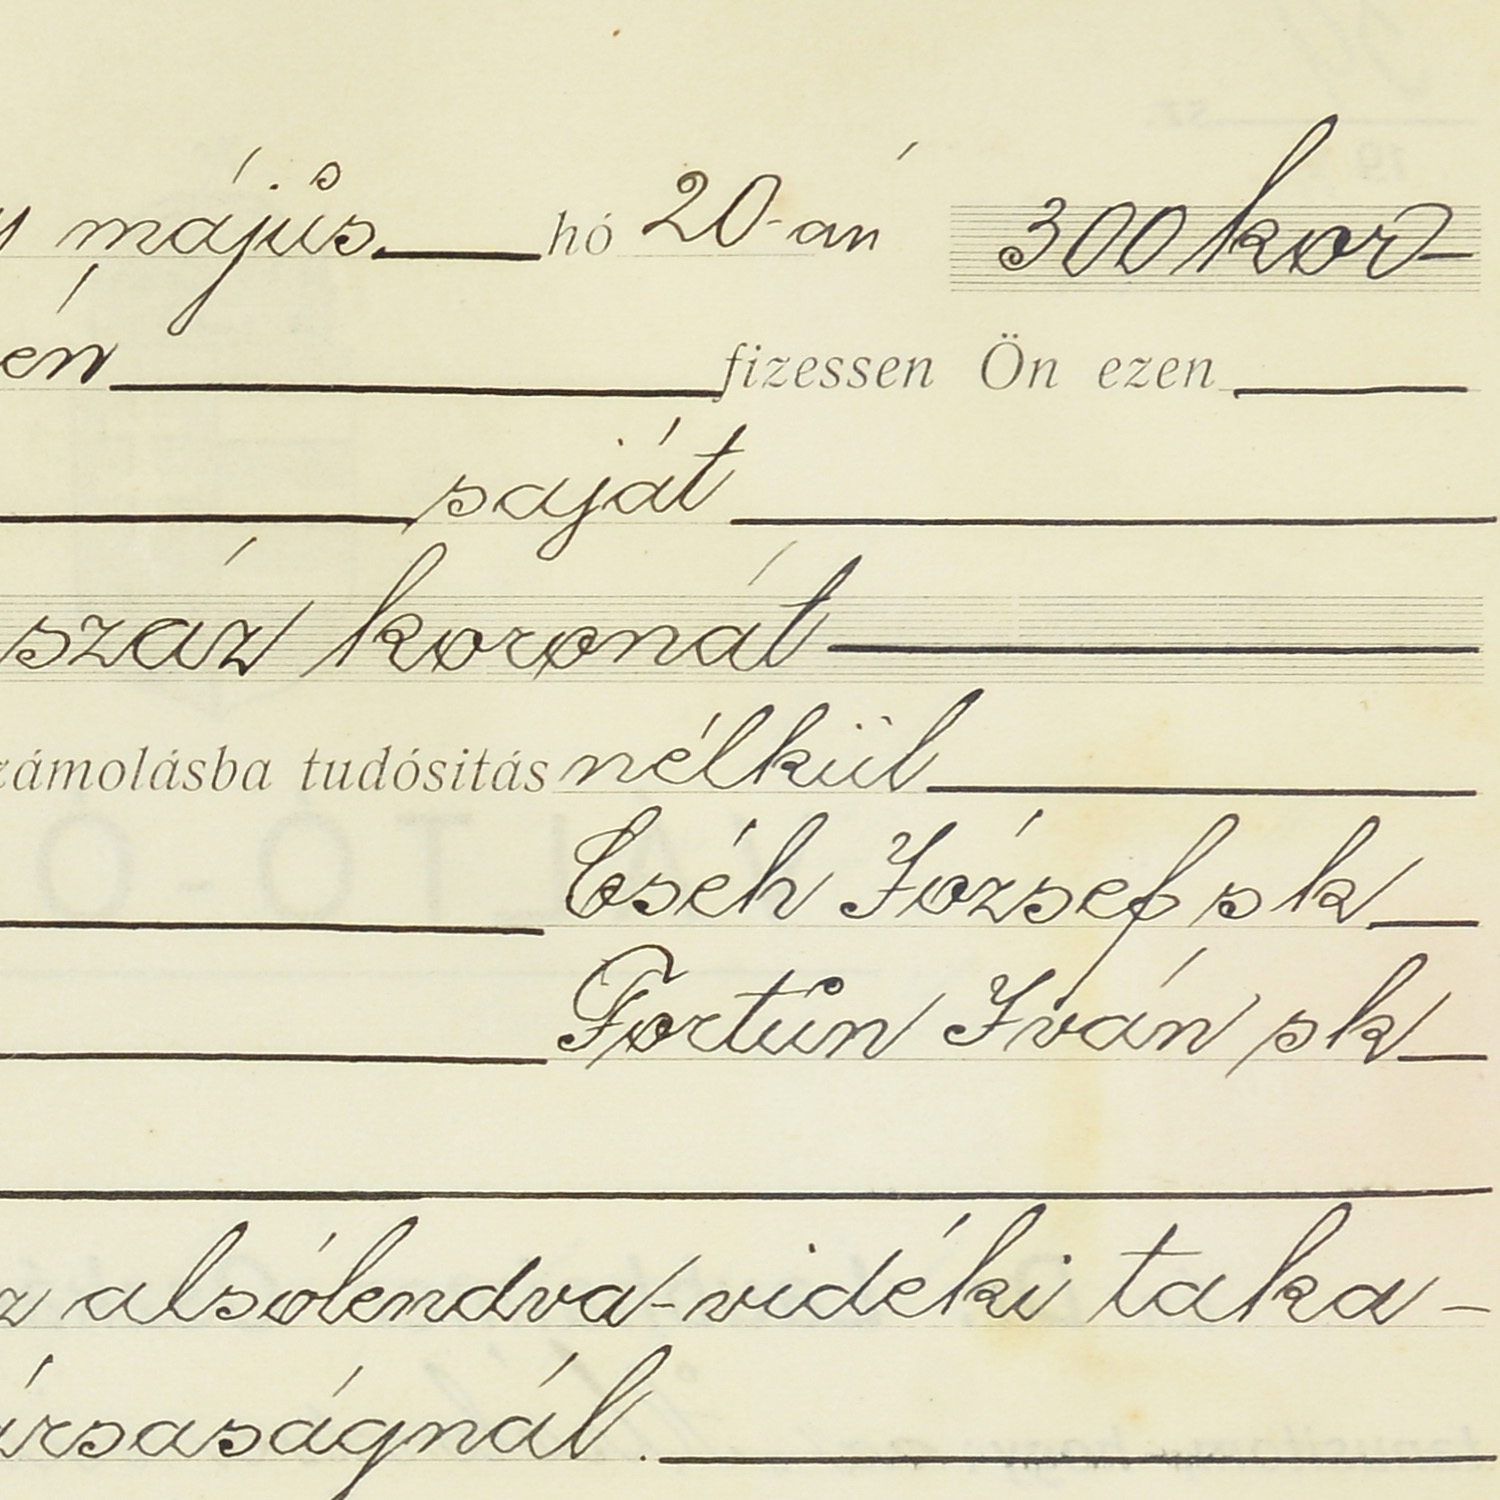 május hó 20-án 300 kor
én fizessen Ön ezen
saját
száz koronát
zámolásba tudósitás nélkül
Cséh József sk
Fortún Iván sk
z alsólendva-vidéki taka-
ársaságnál.